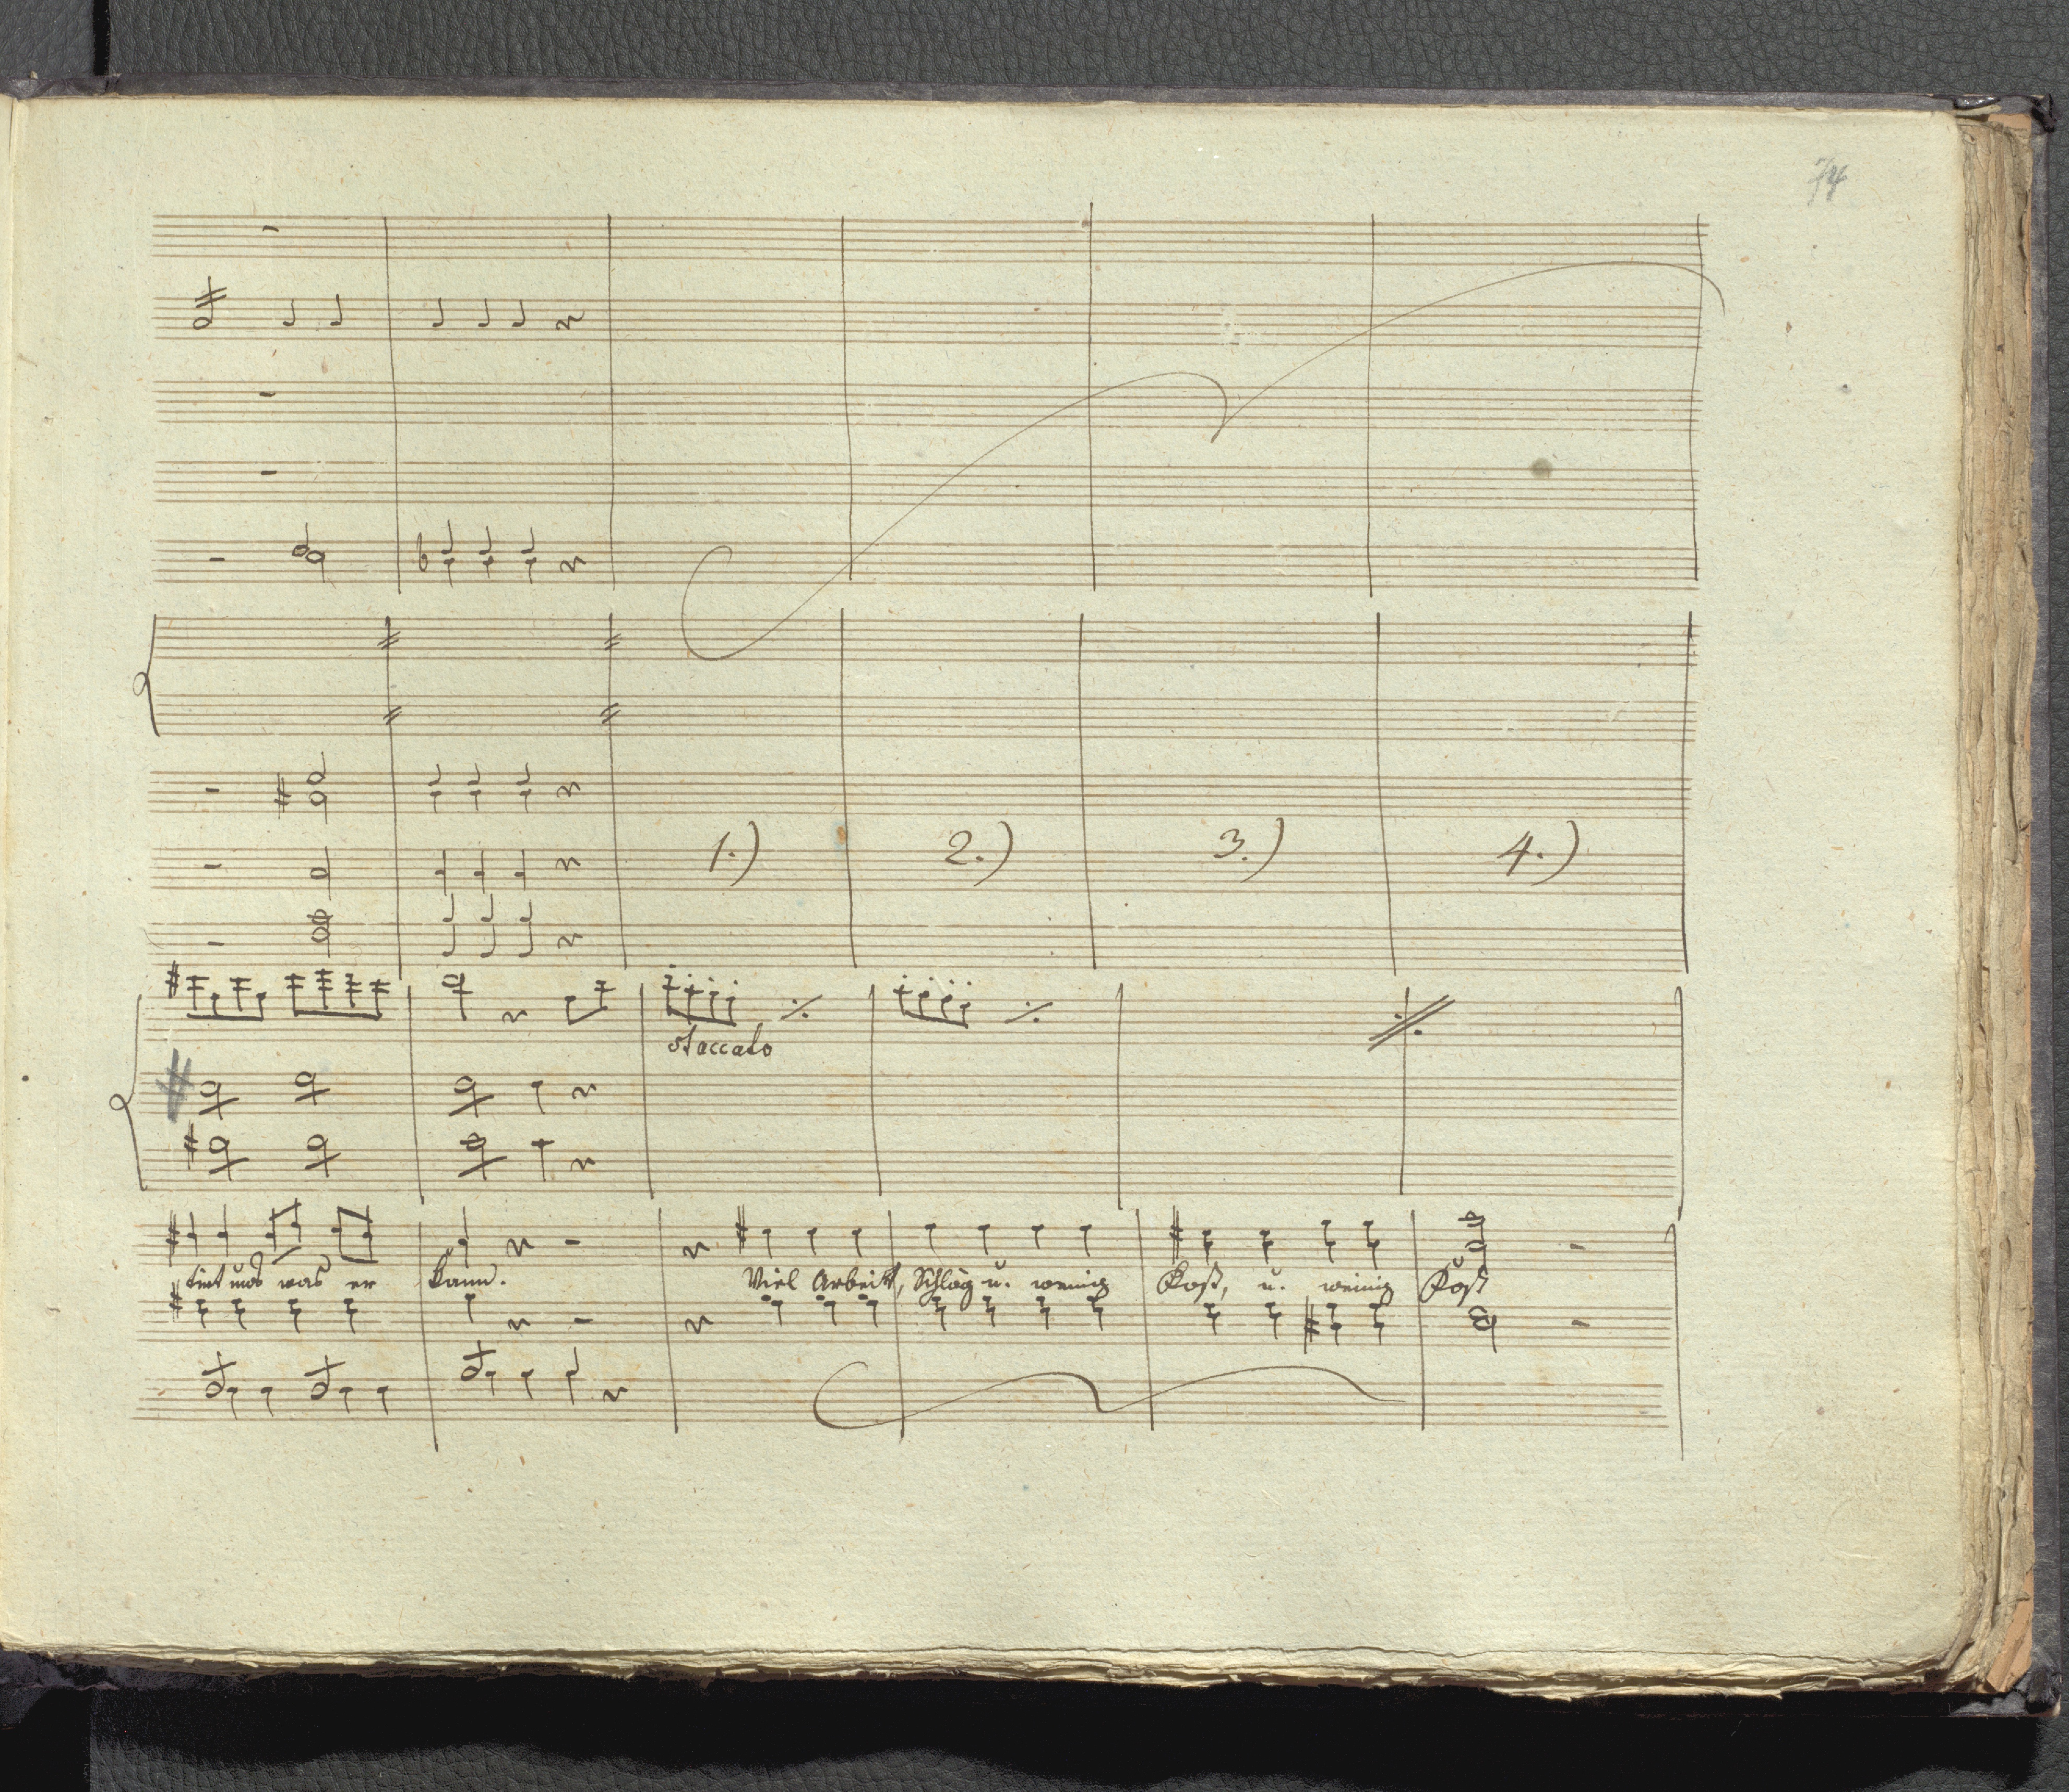 74
1.) 2.) 3.) 4.)
staccato
uns was er kann. Viel Arbeit, Schläg u. wenig Kost, u. wenig Kost